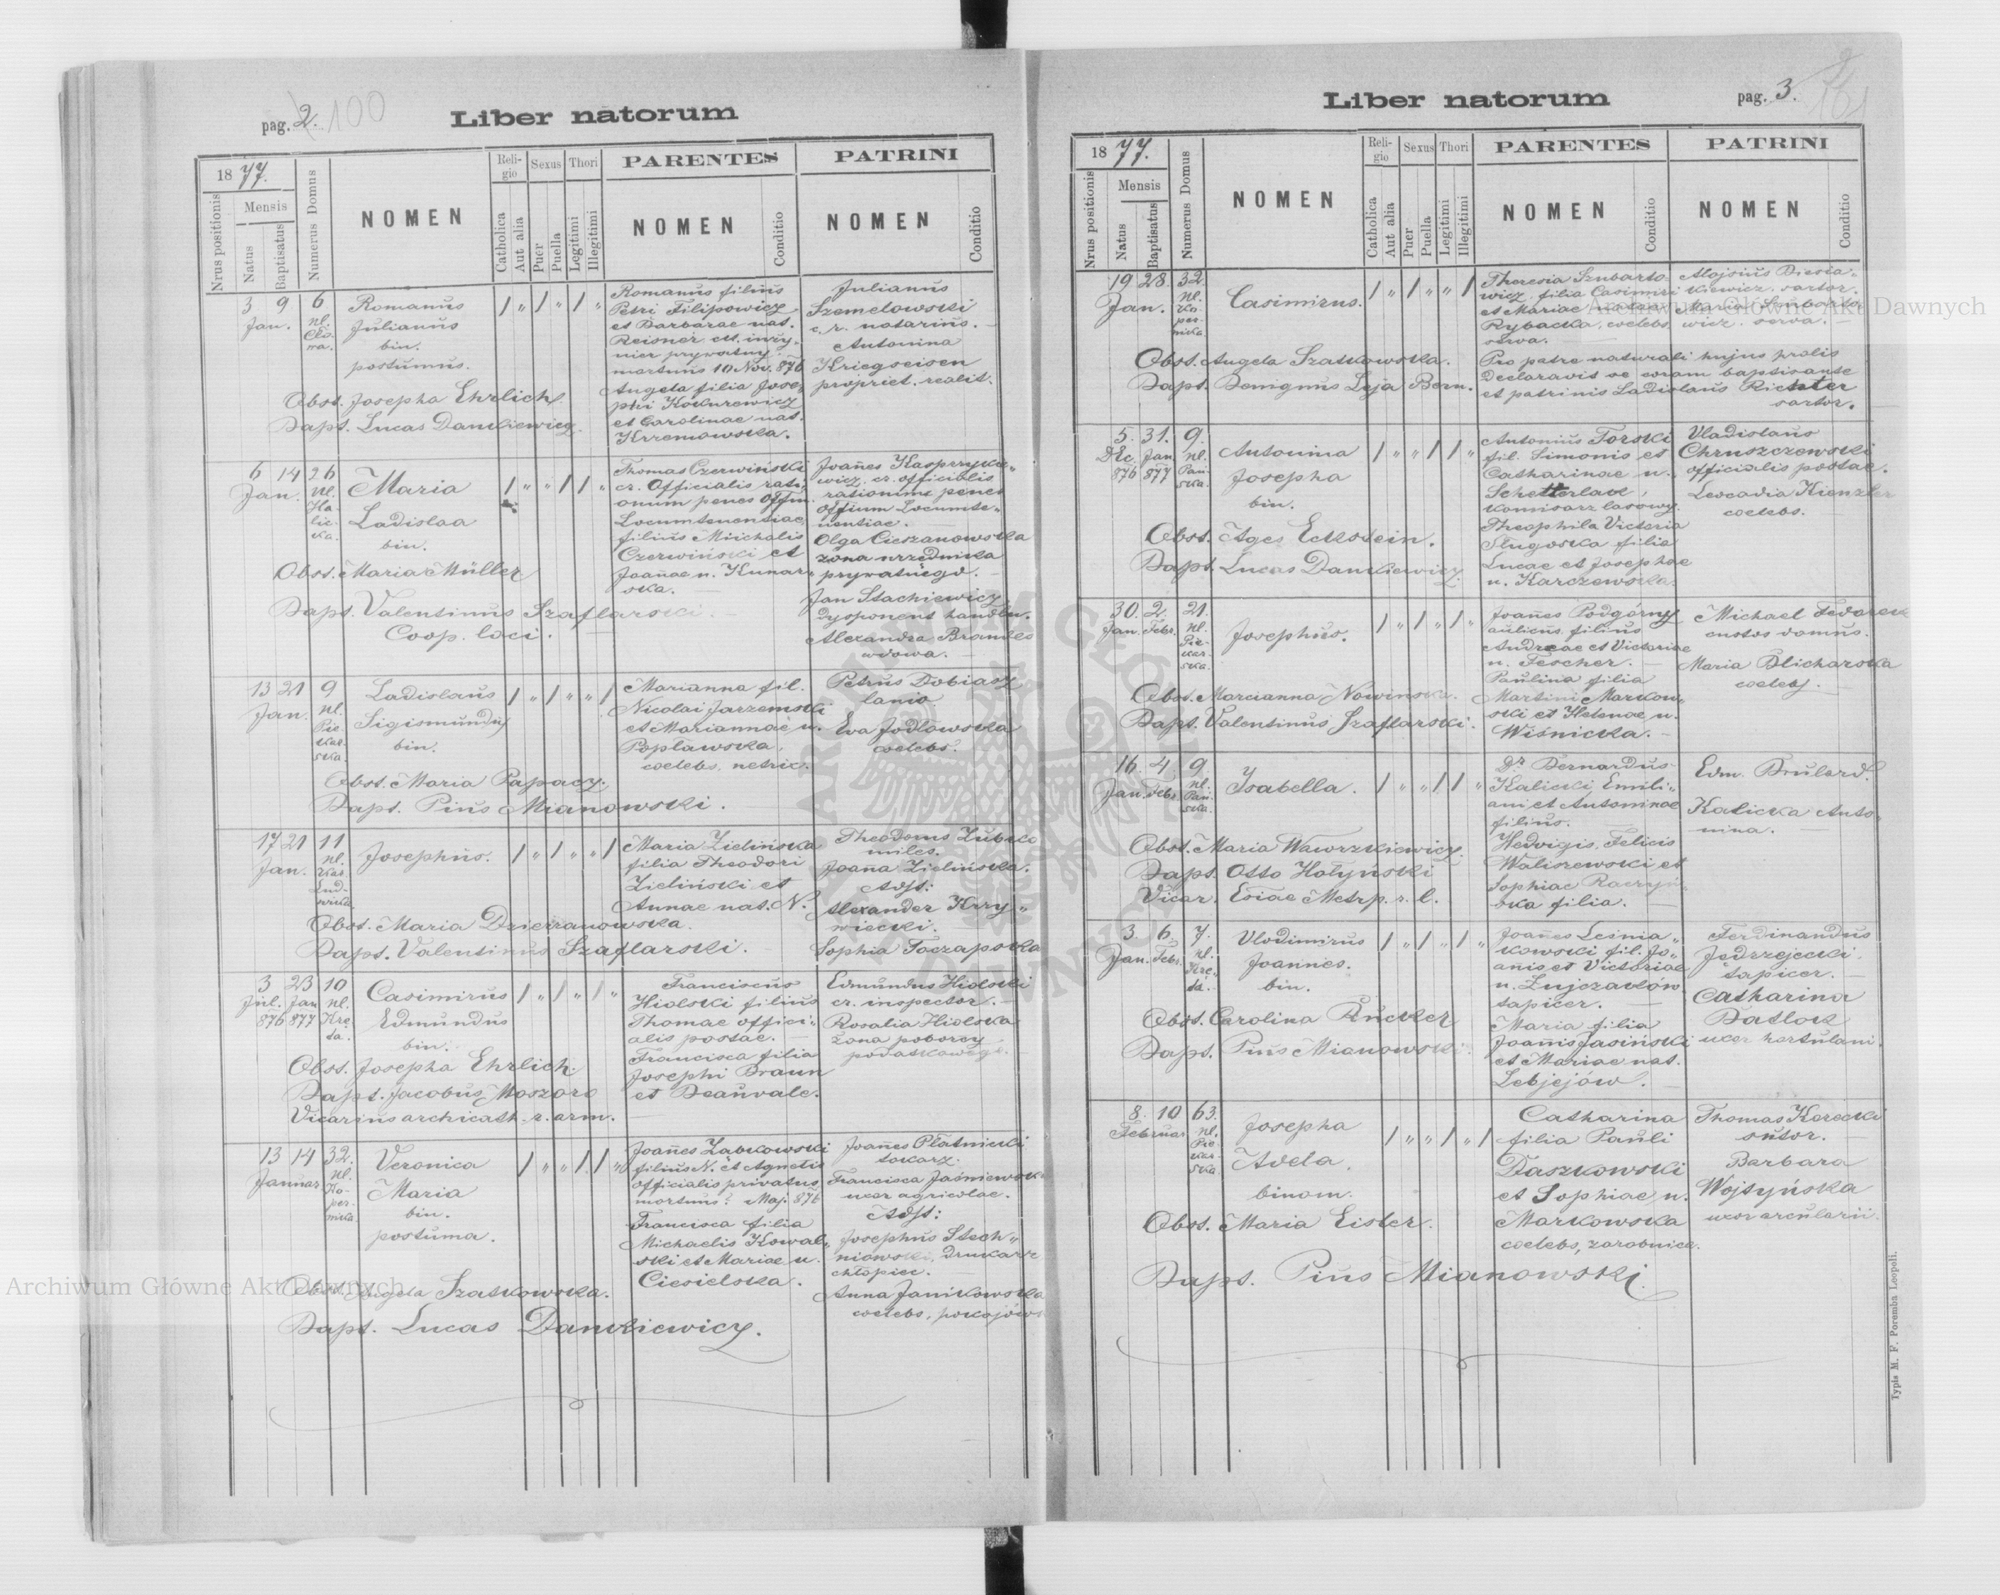 pag. 2. 100
Liber natorum
1877.
Nrus positionis
Mensis
Natus
Baptisatus
Numerus Domus
NOMEN
Religio
Catholica
Aut alia
Sexus
Puer
Puella
Thori
Legitimi
Illegitimi
PARENTES
NOMEN
Conditio
PATRINI
NOMEN
Conditio
3 9 6
Jan. nl.
Romanus
Julianus
bin.
postumus.
Obst. Josepha Ehrlich
Bapt. Lucas Dankiewicz.
Romanus filius
Petri Filipowicz
et Barbarae nat.
Reisner
mortuus 10 Nov. 876
Angela filia Jose-
phi
et Carolinae nat.
Krzemowska.
Julianus
Szemelowski
c. r. notarius.
Antonina
Kriegseisen
propriet. realit.
6 14 26
Jan. nl.
Ha-
lic-
ka.
Maria
Ladislaa
bin.
Obst. Maria Müller
Bapt. Valentinus Szaflarski.
Coop. loci.
Thomas Czerwiński
cr. Officialis rati-
onum penes Offm.
Locumtenentiae,
filius Michalis
Czerwiński et
Joannae n. Kunar-
ska.
Joannes Kasprzyka-
wicz, cr. officialis
rationum penes
offium Locumte-
nentiae.
Olga Cieszanowska
żona urzędnika
prywatnego.
Jan Stachiewicz
dysponent handlu.
Alexandra Brandes
wdowa.
13 21 9
Jan. nl.
Pie-
kar-
ska.
Ladislaus
Sigismundus
bin.
Obst. Maria Papacz.
Bapt. Pius Mianowski.
Marianna fil.
Nicolai Jarzemski
et Mariannae n.
Popławska,
coelebs
Petrus Dobiasz
lanio
Eva Jodłowska
coelebs.
17 21 11
Jan. nl.
Josephus.
Obst. Maria Dzierzanowska.
Bapt. Valentinus Szaflarski.
Maria Zielińska
filia Theodori
Zieliński et
Annae nat. N.
Theodorus Zubko
miles.
Joana Zielińska.
Adst:
Alexander Krzy-
wiecki.
Sophia Toczapska
3 23 10
Jul. Jan nl.
876 877 Krę-
ta.
Casimirus
Edmundus
bin.
Obst. Josepha Ehrlich.
Bapt. Jacobus Moszoro
Vicarius archicath. r. arm.
Franciscus
Hiolski filius
Thomae offici-
alis postae.
Francisca filia
Josephi Braun
et Beauvale.
Edmundus Hiolski
cr. inspector.
Rosalia Hiolska
żona poborcy
podatkowego.
13 14 32.
Januar nl.
Ko-
per-
nika
Veronica
Maria
bin.
postuma.
Obst. Angela Szatkowska.
Bapt. Lucas Dankiewicz.
Joannes Żabkowski
filius N. et Agnetis
officialis privatus
mortuus ? Maj. 876
Francisca filia
Michaelis Kowal-
ski et Mariae n.
Ciesielska.
Joannes Płatnicki
tokarz.
Francisca Jaśniewska
uxor agricolae.
Adst:
Josephus Stech-
niowski, drukarz
chłopiec.
Anna Janikowska
coelebs, pokojówka
pag. 3.
Liber natorum
1877.
Nrus positionis
Mensis
Natus
Baptisatus
Numerus Domus
NOMEN
Religio
Catholica
Aut alia
Sexus
Puer
Puella
Thori
Legitimi
Illegitimi
PARENTES
NOMEN
Conditio
PATRINI
NOMEN
Conditio
19 28. 32.
Jan. nl.
Ko-
per-
nika
Casimirus.
Obst. Angela Szatkowska.
Bapt. Benignus Leja Bern.
Theresia Szubarto-
wicz, filia Casimiri
et Mariae
Rybacka, coelebs
serva.
Alojsius Biesia-
kiewicz. sartor.
Maria Szubarto-
wicz. serva.
Pro patre naturali hujus prolis
Declaravit se coram baptisante
et patrinis Ladislaus Richter
sartor.
5. 31. 9.
Dec. Jan nl.
876 877 Pań-
ska.
Antonina
Josepha
bin.
Obst. Ages Eckstein.
Bapt. Lucas Dankiewicz.
Antonius Torski
fil. Simonis et
Catharinae n.
Schetterlak,
komisarz lasowy.
Theophila Victoria
Długoska filia
Lucae et Josephae
n. Karczewska.
Vladislaus
Chruszczewski
officialis postae.
Leocadia Kienzler
coelebs.
30. 2. 21.
Jan. Febr. nl.
Pie-
kar-
ska.
Josephus.
Obst. Marcianna Nowinska.
Bapt. Valentinus Szaflarski.
Joannes Podgórny
aulicus filius
Andreae et Victoriae
n. Fescher.
Paulina filia
Martini Markow-
ski et Helenae n.
Wiśnicka.
Michael Fedorek
custos domus.
Maria Blicharska
coelebs.
16. 4. 9.
Jan. Febr. nl.
Pań-
ska.
Isabella.
Obst. Maria Wawrzkiewicz
Bapt. Otto Hołyński
Vicar. Ecclae Metrp. r. l.
Dr Bernardus
Kalicki, Emili-
ani et Antoninae
filius.
Hedvigis, Felicis
Waliszewski et
Sophiae Raczyń-
ska filia.
Edm. Brulard.
Kalicka Anto-
nina.
3. 6. 7.
Jan. Febr. nl.
Krę-
ta.
Vlodimirus
Joannes.
bin.
Obst. Carolina Rucker
Bapt. Pius Mianowski.
Joannes Lesnia-
kowski fil. Jo-
anis et Victoriae
n. Zujczaków.
tapicer.
Maria filia
Joannis Jasiński
et Mariae nat.
Lebjejów.
Ferdinandus
Jędrzejecki.
tapicer.
Catharina
Batlok
uxor hortulani.
8. 10 63.
Februar nl.
Pie-
kar-
ska
Josepha
Adela
binom.
Obst. Maria Eister.
Bapt. Pius Mianowski.
Catharina
filia Pauli
Daszkowski
et Sophiae n.
Markowska
coelebs, zarobnica.
Thomas Korecki
sutor.
Barbara
Wojtyńska
uxor arcularii.
Typis M. F. Poremba Leopoli.
Archiwum Główne Akt Dawnych
Archiwum Główne Akt Dawnych
ARCHIWUM GŁÓWNE AKT DAWNYCH